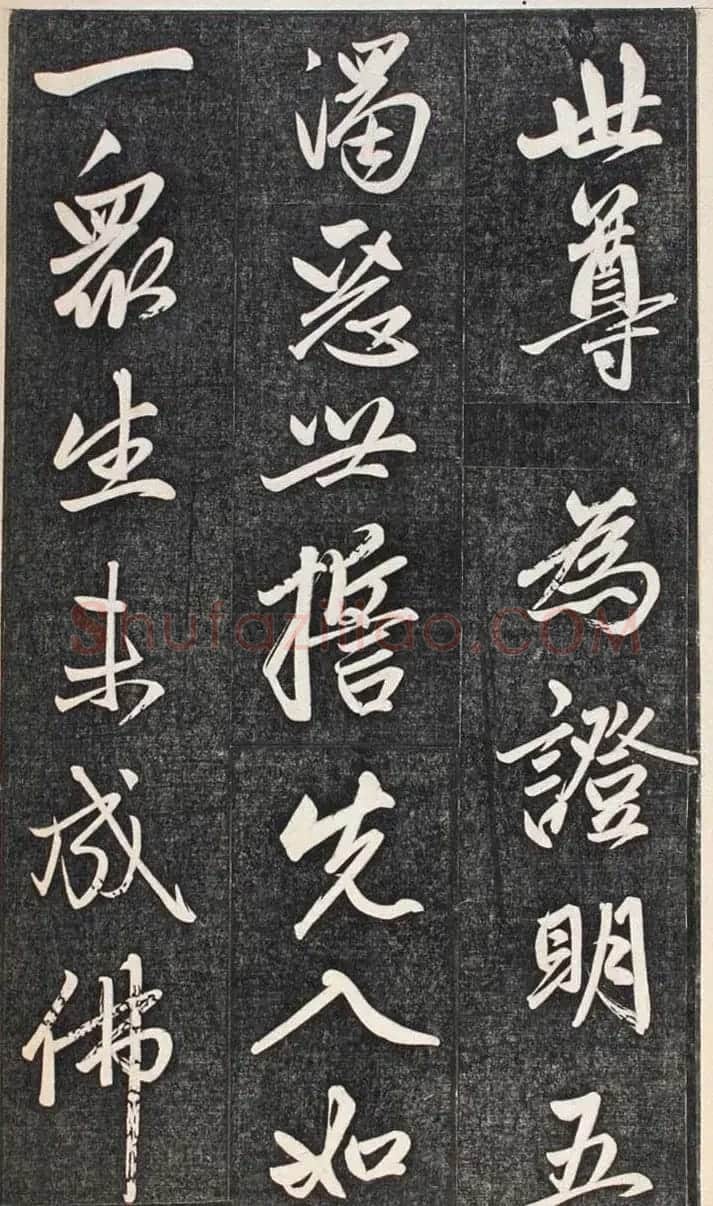 世尊為證明五
濁惡世誓先入如
一眾生未成佛
Shufaziliao.COM